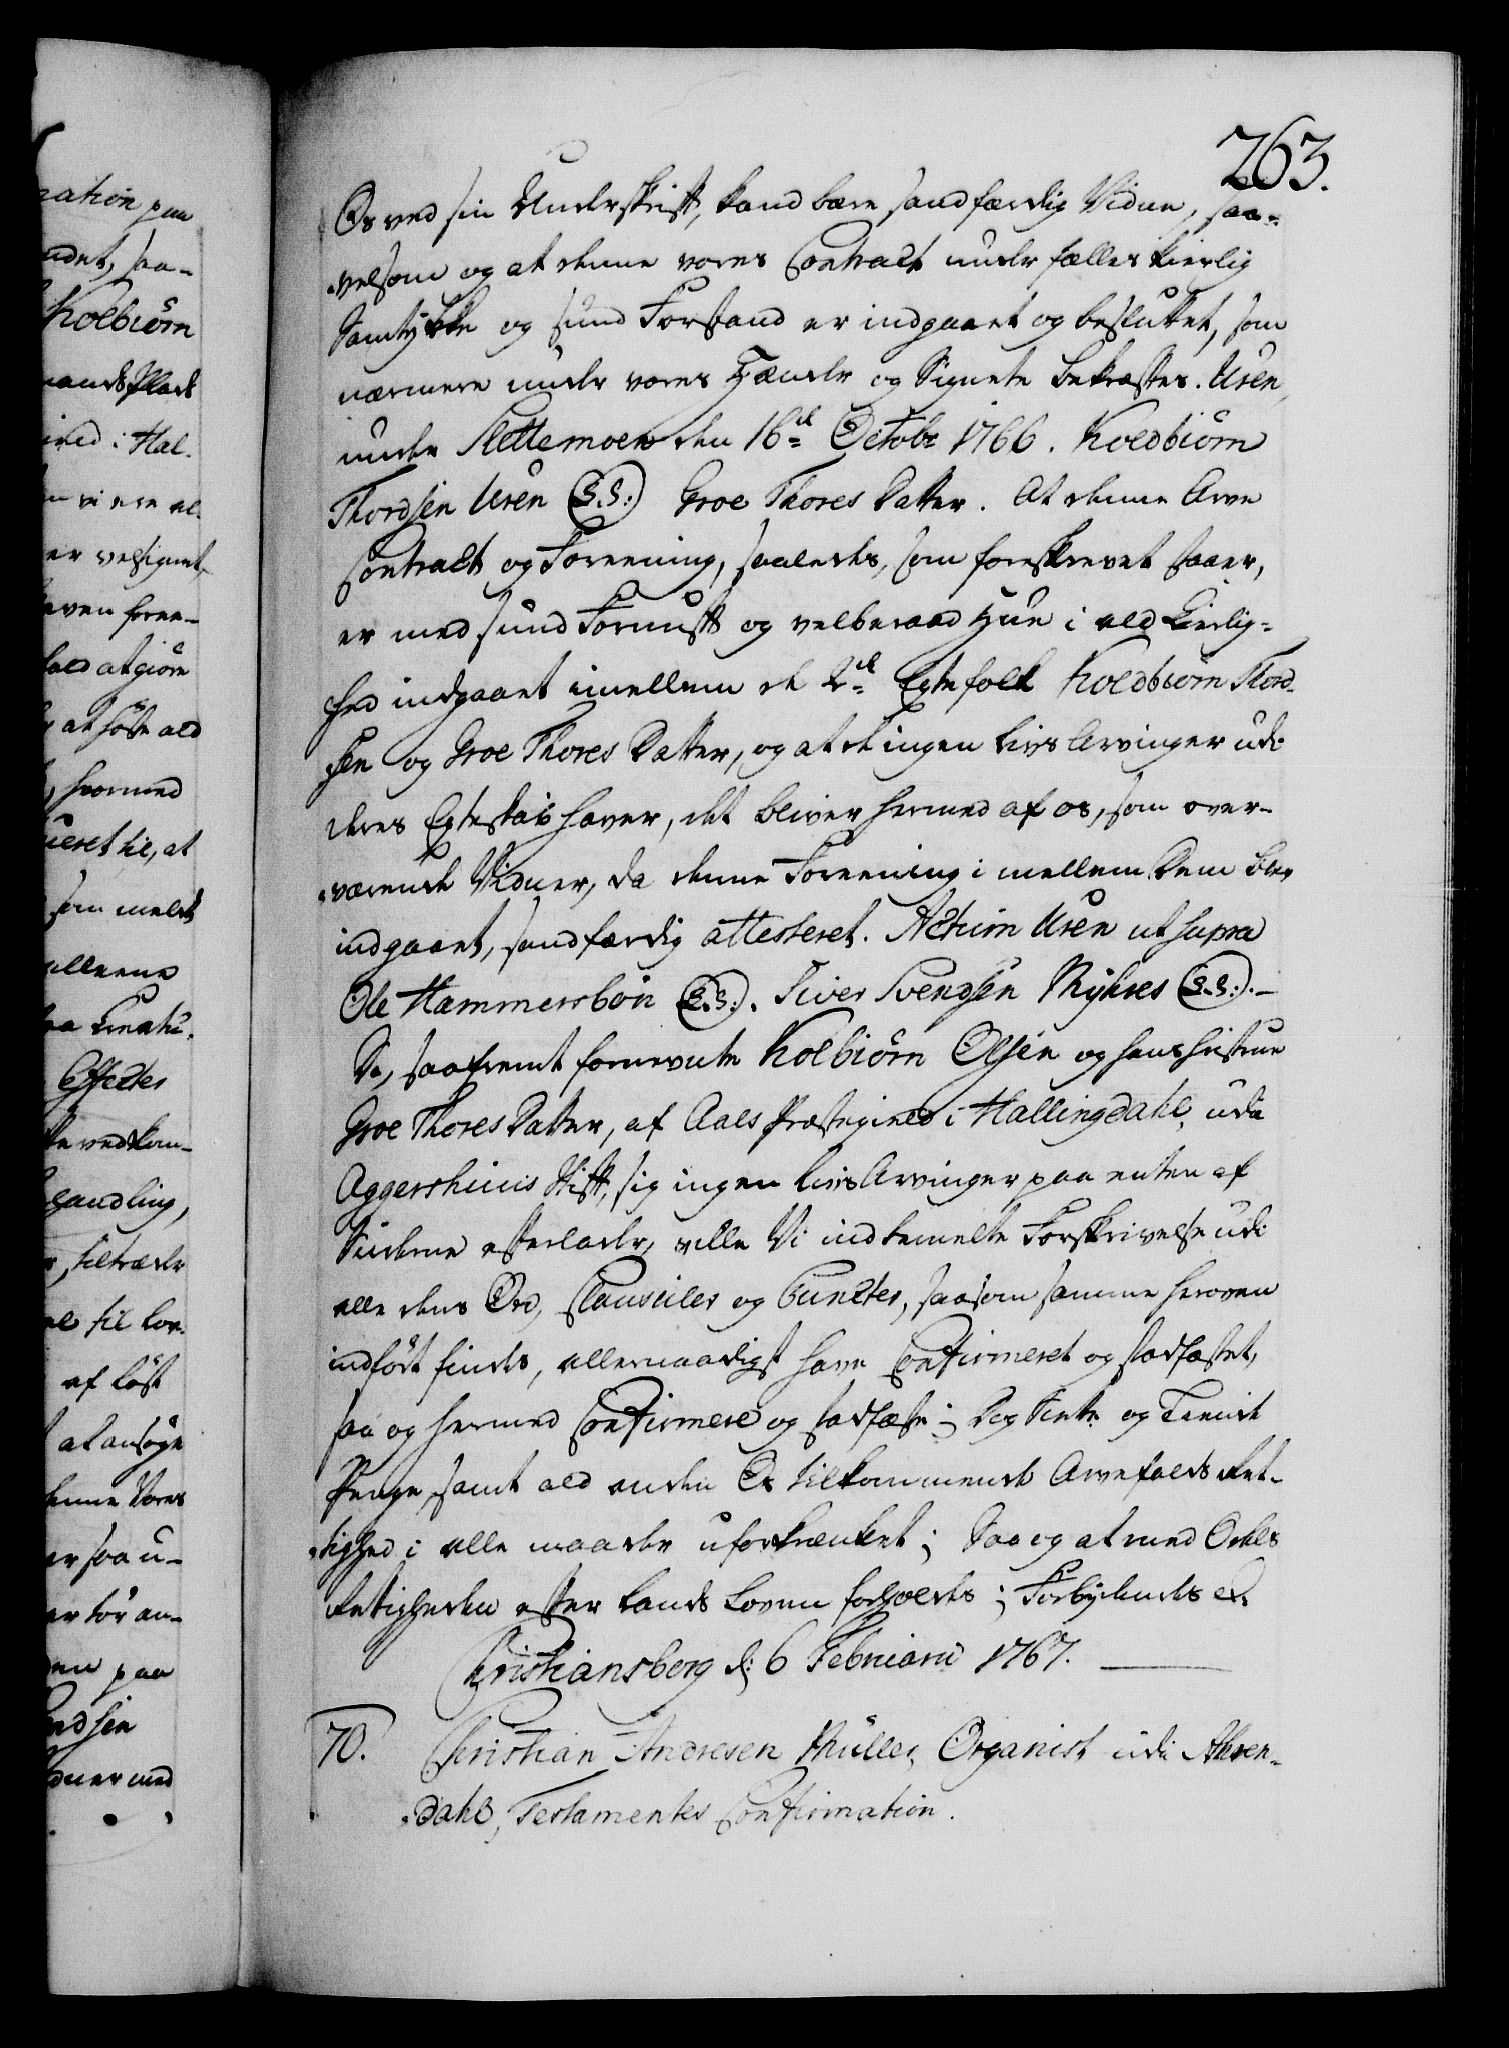 263.
Os ved sin Underskrift, kand bære sandfærdig Vidne, saa-
velsom og at denne vores Contract under fælles kierlig
Samtykke og sund Forstand er indgaaet og besluttet, som
nærmere under vores Hænder og Signete bekræftes. Uren
under Slettemoen den 16de Octobr 1766. Koldbiörn
Thordsen Uren (L.S.) Groe Thores Datter. At denne Arve
Contract og Foreening, saaledes, som foreskrevet staaer,
er med sund Fornuft og velberaad Hue i ald Kierlig-
hed indgaaet imellem de 2de Egtefolk Koldbiörn Thord-
sen og Groe Thores Datter, og at de ingen Livs Arvinger udi
deres Egteskab haver, det bliver hermed af os, som over-
værende Vidner, da denne Foreening i mellem Dem blev
indgaaet, sandfærdig attesteret. Actum Uren ut supra
Ole Hammersbön (L.S.). Siver Svendsen Myhres (L.S.).-
Da, saafremt fornevnte Kolbiörn Olsen og hans Hustrue
Groe Thores Datter, af Aals Præstegield i Hallingdahl, udi
Aggershuus Stift, sig ingen Livs Arvinger paa enten af
Siderne efterlader, ville Vi indbemelte Forskrivelse udi
alle dens Ord, Clausuler og Puncter, saasom samme heroven
indfört findes, allernaadigst have Confirmeret og stadfæstet,
saa og hermed Confirmere og stadfæste; Dog Siette og Tiende
Penge, samt ald anden Os tilkommende Arvefalds Ret-
tighed i alle maader uforkrænket; Saa og at med Odels
Rettigheden efter Lands Loven forholdes; Forbydendes &.
Christiansborg d: 6 Februarii 1767.
70. Christian Andresen Müller, Organist udi Ahren-
dahl, Testamentes Confirmation.